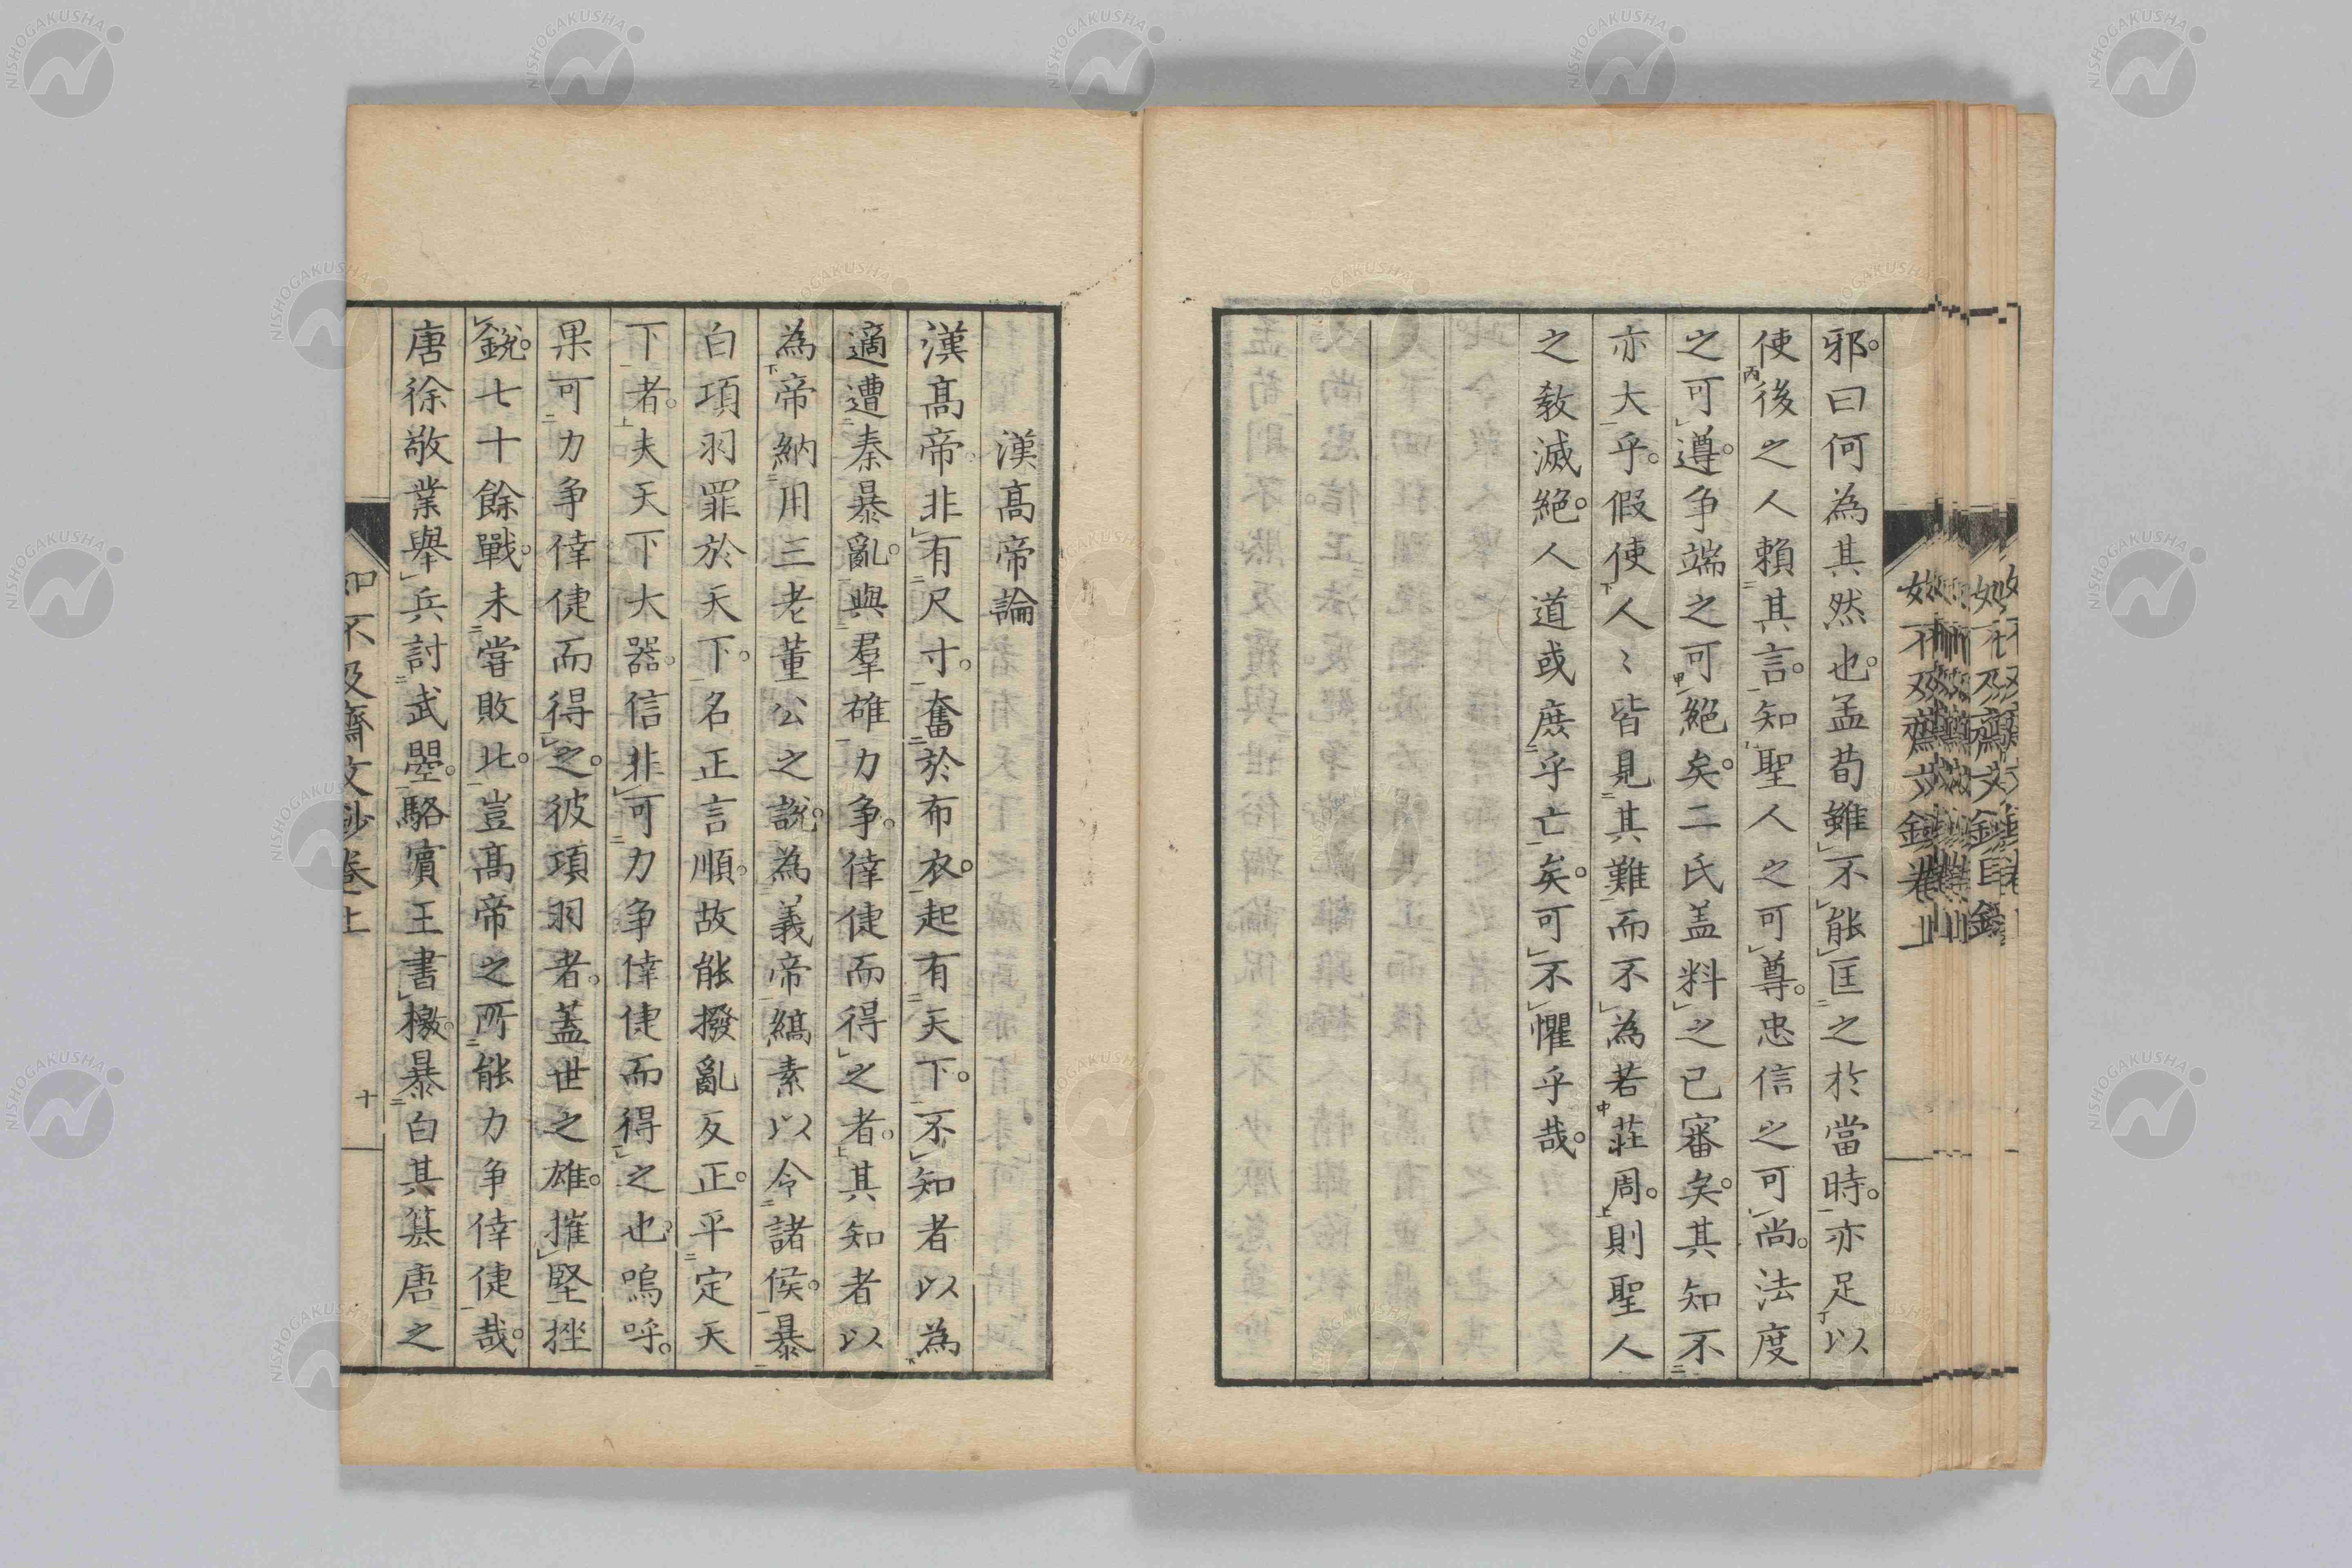 邪。曰何為其然也。孟荀雖不能匡之於當時。亦足以
使後之人賴其言。知聖人之可尊。忠信之可尚。法度
之可遵。争端之可絕矣。二氏盖料之已審矣。其知不
亦大乎。假使人〻皆見其難而不為若莊周。則聖人
之敎滅絕。人道或庶乎亡矣。可不懼乎哉。
漢髙帝論
漢髙帝非有尺寸。奮於布衣。起有天下。不知者以為
適遭秦暴亂。與羣雄力争。倖倢而得之者。其知者以
為帝納用三老董公之說。為義帝縞素以令諸侯。暴
白項羽罪於天下。名正言順。故能撥亂反正。平定天
下者。夫天下大器。信非可力争倖倢而得之也。嗚呼。
果可力争倖倢而得之。彼項羽者。蓋世之雄。摧堅挫
銳。七十餘戰。未嘗敗北。豈髙帝之所能力争倖倢哉。
唐徐敬業舉兵討武曌。駱賓王書檄。暴白其簒唐之
如不及齋文鈔卷上
十
NISHOGAKUSHA